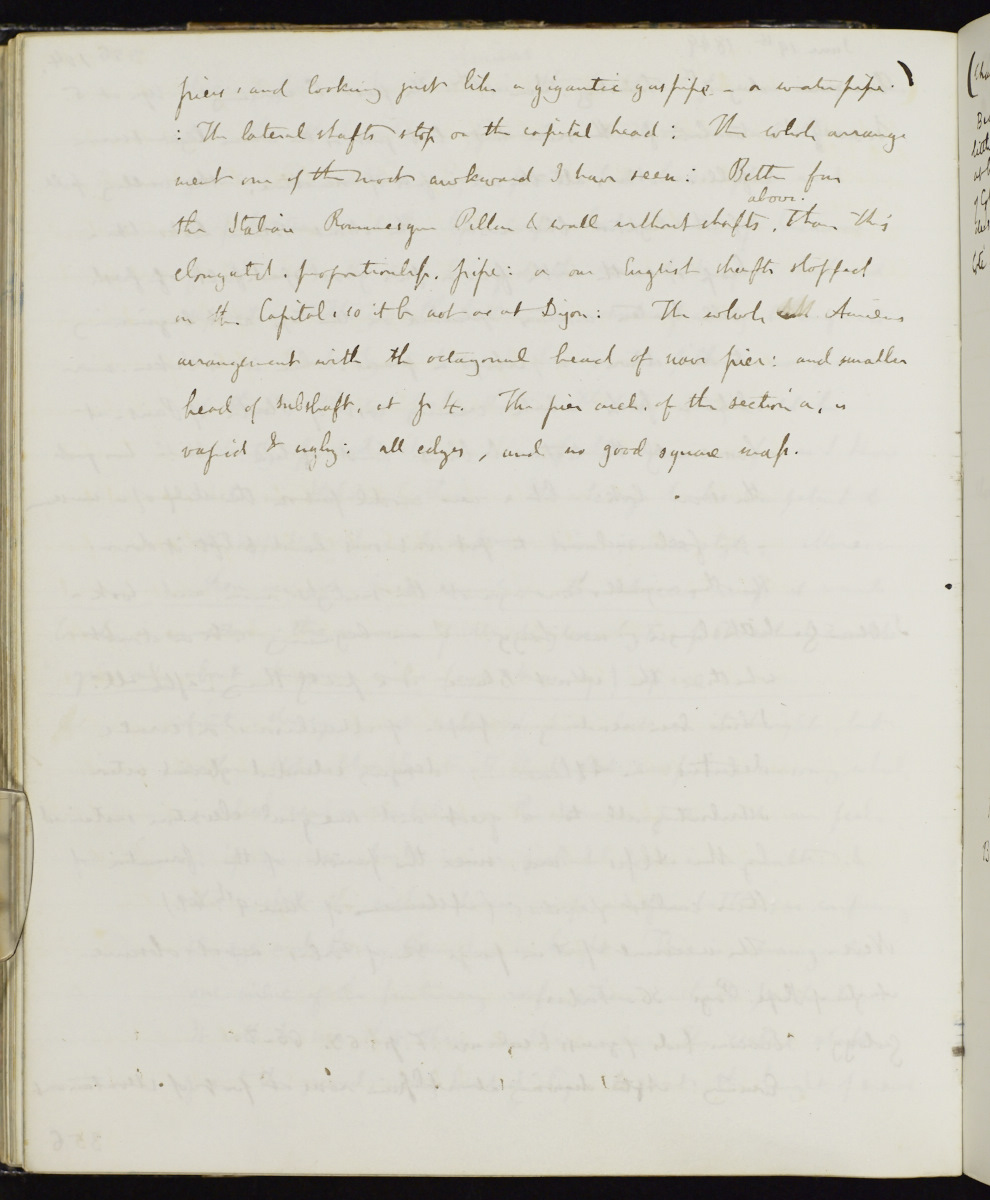 piers, and looking just like a gigantic gaspipe - or waterpipe. )
: The lateral shafts stop on the capital head: The whole arrange
ment one of the most awkward I have seen: Better far
above.
the Italian Romanesque Pillar & wall without shafts, than this
elongated, proportionless, pipe: or our English shafts stopped
on the Capital, so it be not as at Dijon: The whole Amiens
arrangement with the octagonal head of nave pier: and smaller
head of subshaft, at p 4. The pier arch, of the section a, is
vapid & ugly: all edges, and no good square mass.